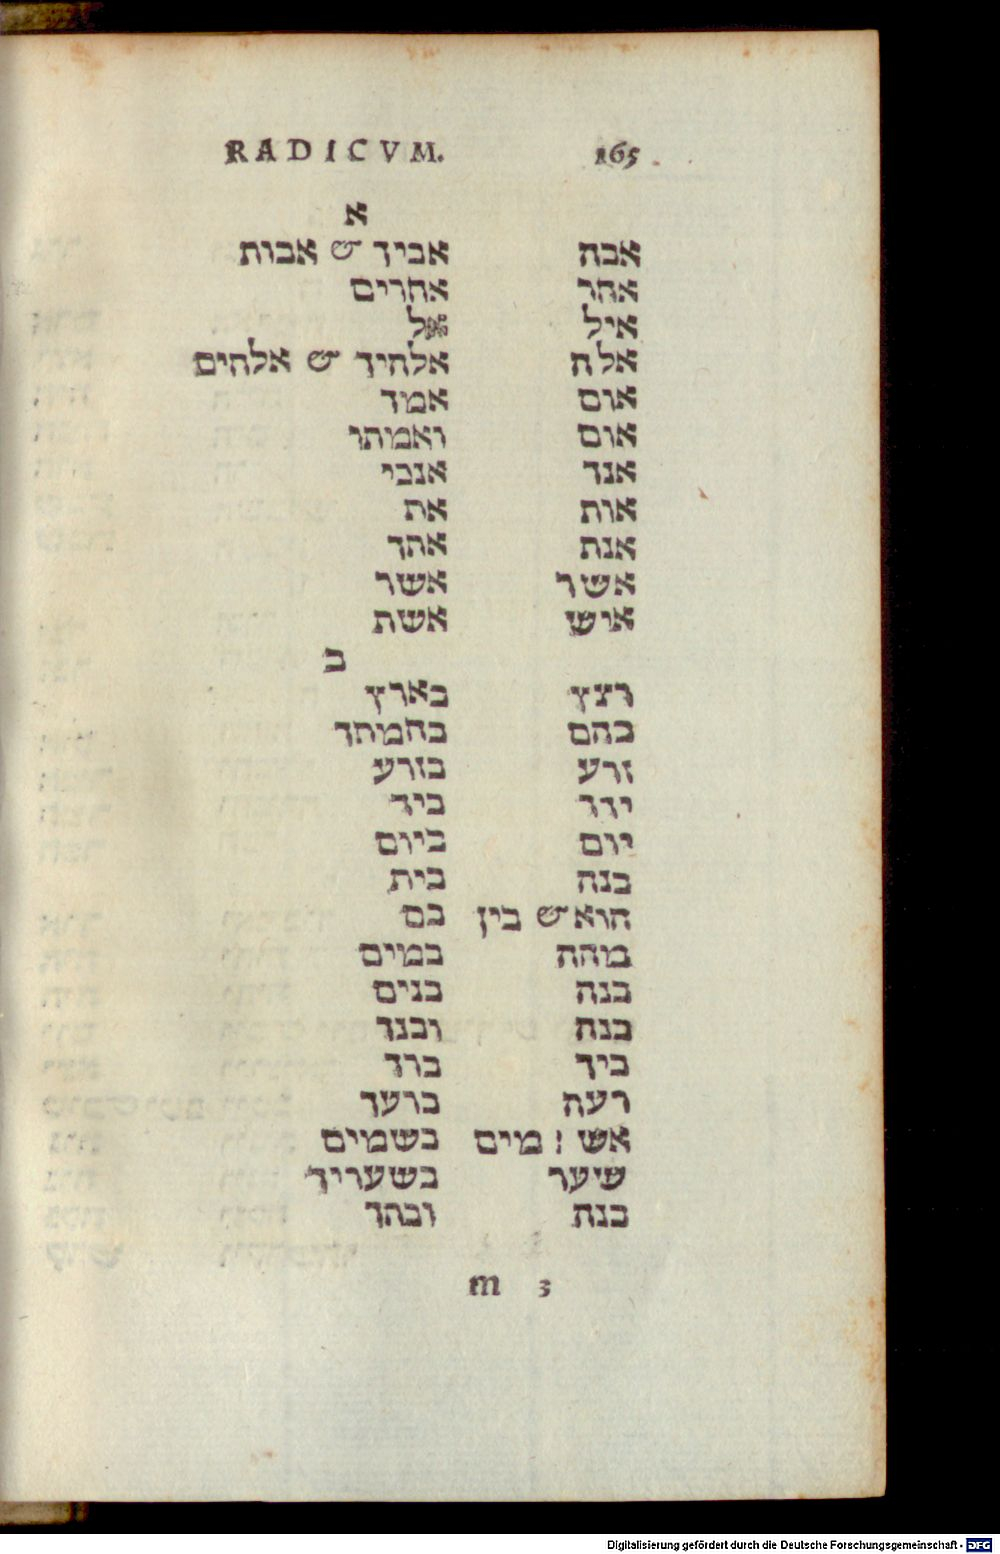 RADICVM. 165
א
אבה אביך & אבות
אחר אחרים
איל אל
אלה אלהיך & אלהים
אום אמך
אום ואמתו
אנך אנכי
אות את
אנת אתך
אשר אשר
איש אשת
ב
רצץ בארץ
בהם בהמתך
זרע בזרע
ידד ביד
יום ביום
בנה בית
הוא & בין בם
מהה במים
בנה בנים
בנה ובנך
ביך ברך
רעה ברעך
אש ! מים בשמים
שיער בשעריך
בנה ובתך
m 3
Digitalisierung gefördert durch die Deutsche Forschungsgemeinschaft - DFG